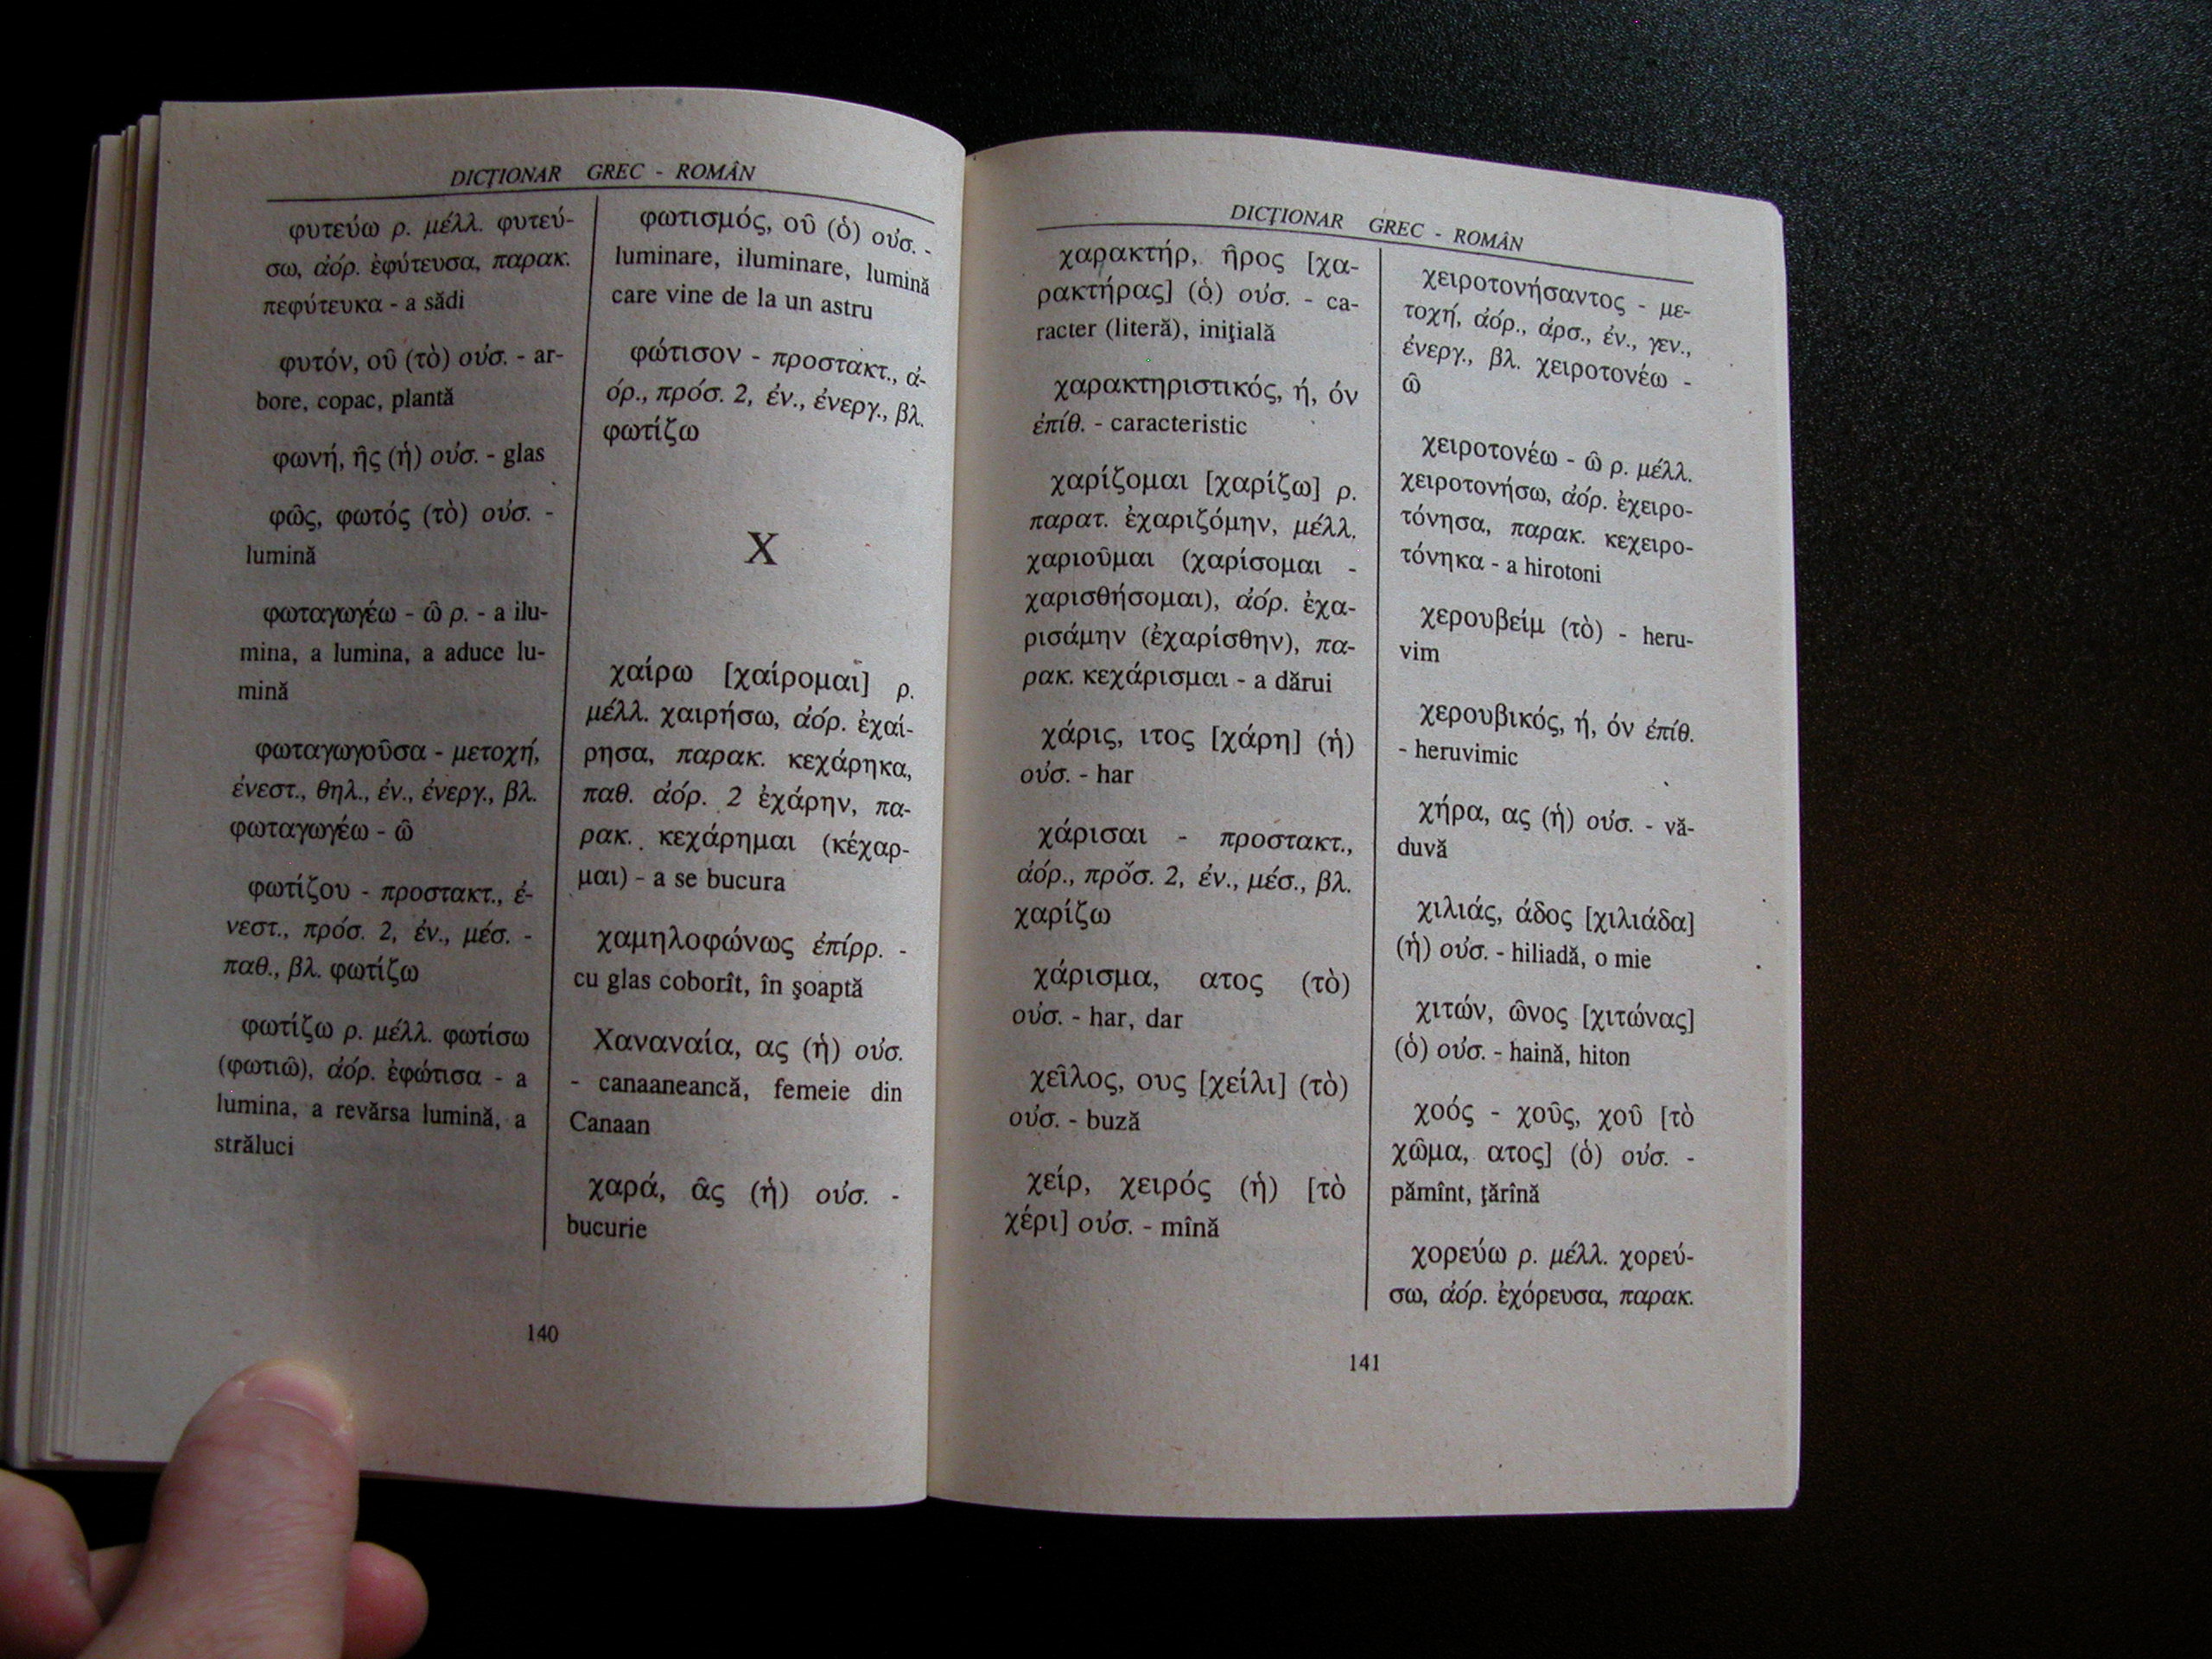 DICŢIONAR GREC - ROMÂN
φυτεύω ρ. μέλλ. φυτεύ-
σω, ἀόρ. ἐφύτευσα, παρακ.
πεφύτευκα - a sădi
φυτόν, οῦ (τὸ) οὐσ. - ar-
bore, copac, plantă
φωνή, ῆς (ἡ) οὐσ. - glas
φῶς, φωτός (τὸ) οὐσ. -
lumină
φωταγωγέω - ῶ ρ. - a ilu-
mina, a lumina, a aduce lu-
mină
φωταγωγοῦσα - μετοχή,
ἐνεστ., θηλ., ἐν., ἐνεργ., βλ.
φωταγωγέω - ῶ
φωτίζου - προστακτ., ἐ-
νεστ., πρόσ. 2, ἐν., μέσ. -
παθ., βλ. φωτίζω
φωτίζω ρ. μέλλ. φωτίσω
(φωτιῶ), ἀόρ. ἐφώτισα - a
lumina, a revărsa lumină, a
străluci
φωτισμός, οῦ (ὁ) οὐσ. -
luminare, iluminare, lumină
care vine de la un astru
φώτισον - προστακτ., ἀ-
όρ., πρόσ. 2, ἐν., ἐνεργ., βλ.
φωτίζω
Χ
χαίρω [χαίρομαι] ρ.
μέλλ. χαιρήσω, ἀόρ. ἐχαί-
ρησα, παρακ. κεχάρηκα,
παθ. ἀόρ. 2 ἐχάρην, πα-
ρακ. κεχάρημαι (κέχαρ-
μαι) - a se bucura
χαμηλοφώνως ἐπίρρ. -
cu glas coborît, în şoaptă
Χαναναία, ας (ἡ) οὐσ.
- canaaneancă, femeie din
Canaan
χαρά, ᾶς (ἡ) οὐσ. -
bucurie
140
DICŢIONAR GREC - ROMÂN
χαρακτήρ, ῆρος [χα-
ρακτήρας] (ὁ) οὐσ. - ca-
racter (literă), iniţială
χαρακτηριστικός, ή, όν
ἐπίθ. - caracteristic
χαρίζομαι [χαρίζω] ρ.
παρατ. ἐχαριζόμην, μέλλ.
χαριοῦμαι (χαρίσομαι -
χαρισθήσομαι), ἀόρ. ἐχα-
ρισάμην (ἐχαρίσθην), πα-
ρακ. κεχάρισμαι - a dărui
χάρις, ιτος [χάρη] (ἡ)
οὐσ. - har
χάρισαι - προστακτ.,
ἀόρ., πρόσ. 2, ἐν., μέσ., βλ.
χαρίζω
χάρισμα, ατος (τὸ)
οὐσ. - har, dar
χεῖλος, ους [χείλι] (τὸ)
οὐσ. - buză
χείρ, χειρός (ἡ) [τὸ
χέρι] οὐσ. - mînă
χειροτονήσαντος - με-
τοχή, ἀόρ., ἀρσ., ἐν., γεν.,
ἐνεργ., βλ. χειροτονέω -
ῶ
χειροτονέω - ῶ ρ. μέλλ.
χειροτονήσω, ἀόρ. ἐχειρο-
τόνησα, παρακ. κεχειρο-
τόνηκα - a hirotoni
χερουβείμ (τὸ) - heru-
vim
χερουβικός, ή, όν ἐπίθ.
- heruvimic
χήρα, ας (ἡ) οὐσ. - vă-
duvă
χιλιάς, άδος [χιλιάδα]
(ἡ) οὐσ. - hiliadă, o mie
χιτών, ῶνος [χιτώνας]
(ὁ) οὐσ. - haină, hiton
χοός - χοῦς, χοῦ [τὸ
χῶμα, ατος] (ὁ) οὐσ. -
pămînt, ţărînă
χορεύω ρ. μέλλ. χορεύ-
σω, ἀόρ. ἐχόρευσα, παρακ.
141